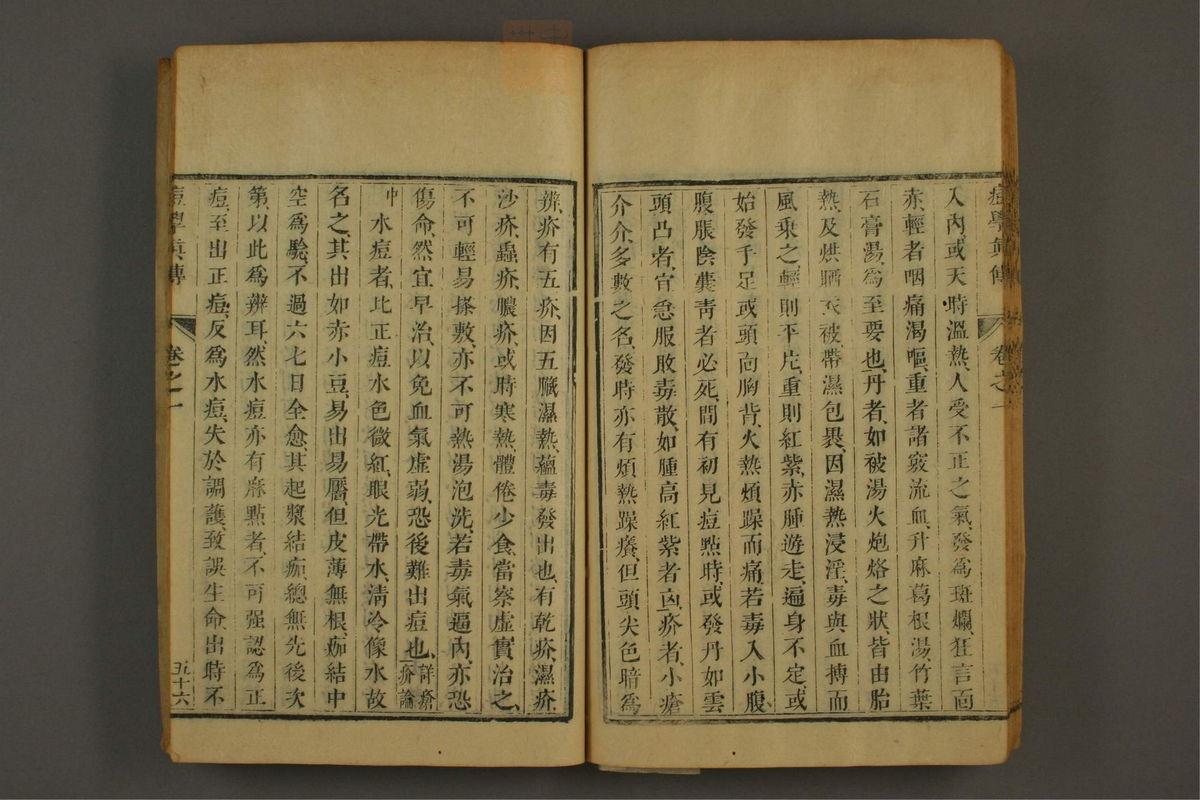 痘學眞傳 卷之一
入內或天時溫熱、人受不正之氣、發爲斑爛、狂言面
赤、輕者咽痛渴嘔、重者諸竅流血、升麻葛根湯、竹葉
石膏湯、爲至要也、丹者、如被湯火炮烙之狀、皆由胎
熱及烘晒衣被、帶濕包裹、因濕熱浸淫、毒與血搏而
風乘之、輕則平片、重則紅紫、赤腫遊走、遍身不定、或
始發手足、或頭面胸背、火熱煩躁而痛、若毒入小腹、
腹脹陰囊靑者必死、間有初見痘點時、或發丹如雲
頭凸者、宜急服敗毒散、如腫高紅紫者凶、疥者、小瘡
介介、多數之名、發時亦有煩熱躁癢、但頭尖色暗爲
辨、疥有五疥、因五臟濕熱、蘊毒發出也、有乾疥、濕疥、
沙疥、蟲疥、膿疥、或時寒熱、體倦少食、當察虛實治之、
不可輕易搽敷、亦不可熱湯泡洗、若毒氣逼內、亦恐
傷命、然宜早治、以免血氣虛弱、恐後難出痘也、詳瘡疥論
中
水痘者、比正痘水色微紅、眼光帶水、淸冷像水、故
名之、其出如赤小豆、易出易靨、但皮薄無根、痂結中
空爲驗、不過六七日全愈、其起漿結痂、總無先後次
第、以此爲辨耳、然水痘亦有麻點者、不可强認爲正
痘、至出正痘、反爲水痘、失於調護、致誤生命、出時不
痘學眞傳 卷之一 五十六